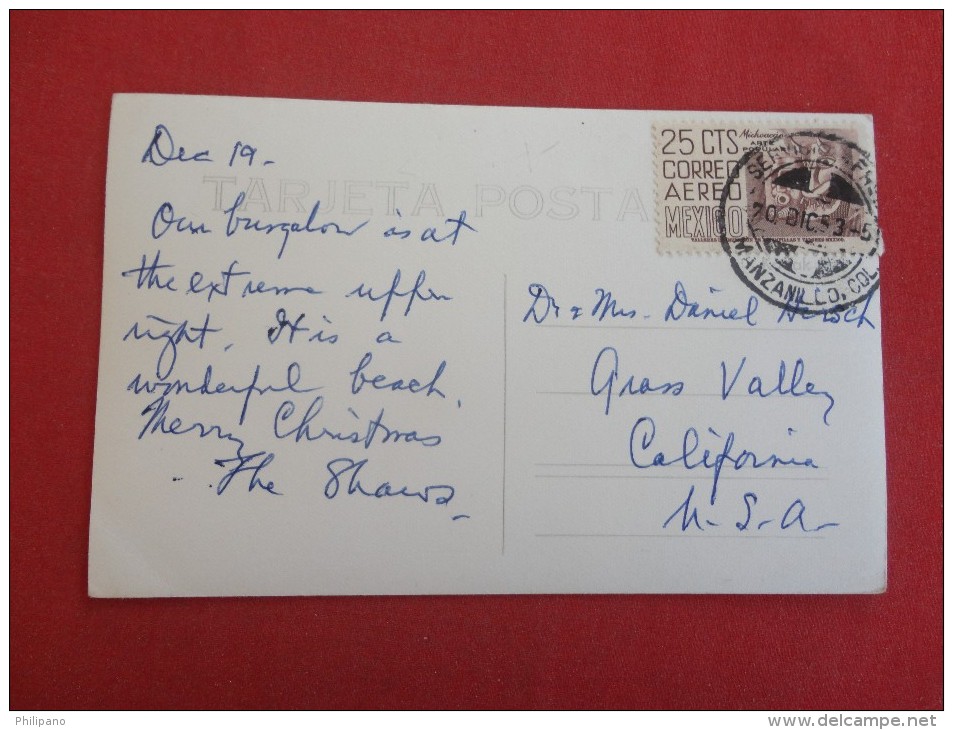 Dec 19-
TARJETA POSTA
Our bungalow is at
the extreme upper
right. It is a
wonderful beach.
Merry Christmas
- The Shaws-
25 CTS
CORREO
AEREO
MEXICO
Michoacán
ARTE
POPULAR
DIC 53
MANZANILLO, COL
Dr & Mrs. Daniel Hirsch
Grass Valley
California
U-S-A-
Philipano
www.delcampe.net